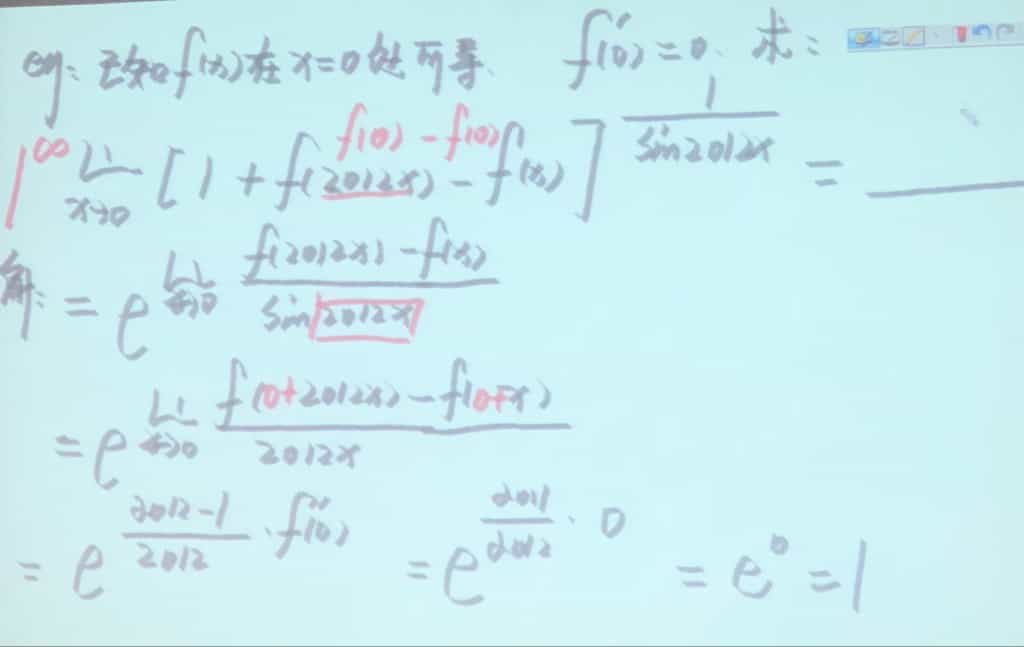 eg: 已知f(x)在x=0处可导. f'(0)=0. 求:
1^∞ lim_{x→0} [1+f(2012x)-f(x)]^{\frac{1}{sin2012x}} = ____
f(0)-f(0)
解: = e^{lim_{x→0} \frac{f(2012x)-f(x)}{sin2012x}}
= e^{lim_{x→0} \frac{f(0+2012x)-f(0+x)}{2012x}}
= e^{\frac{2012-1}{2012}·f'(0)} = e^{\frac{2011}{2012}·0} = e^0 = 1